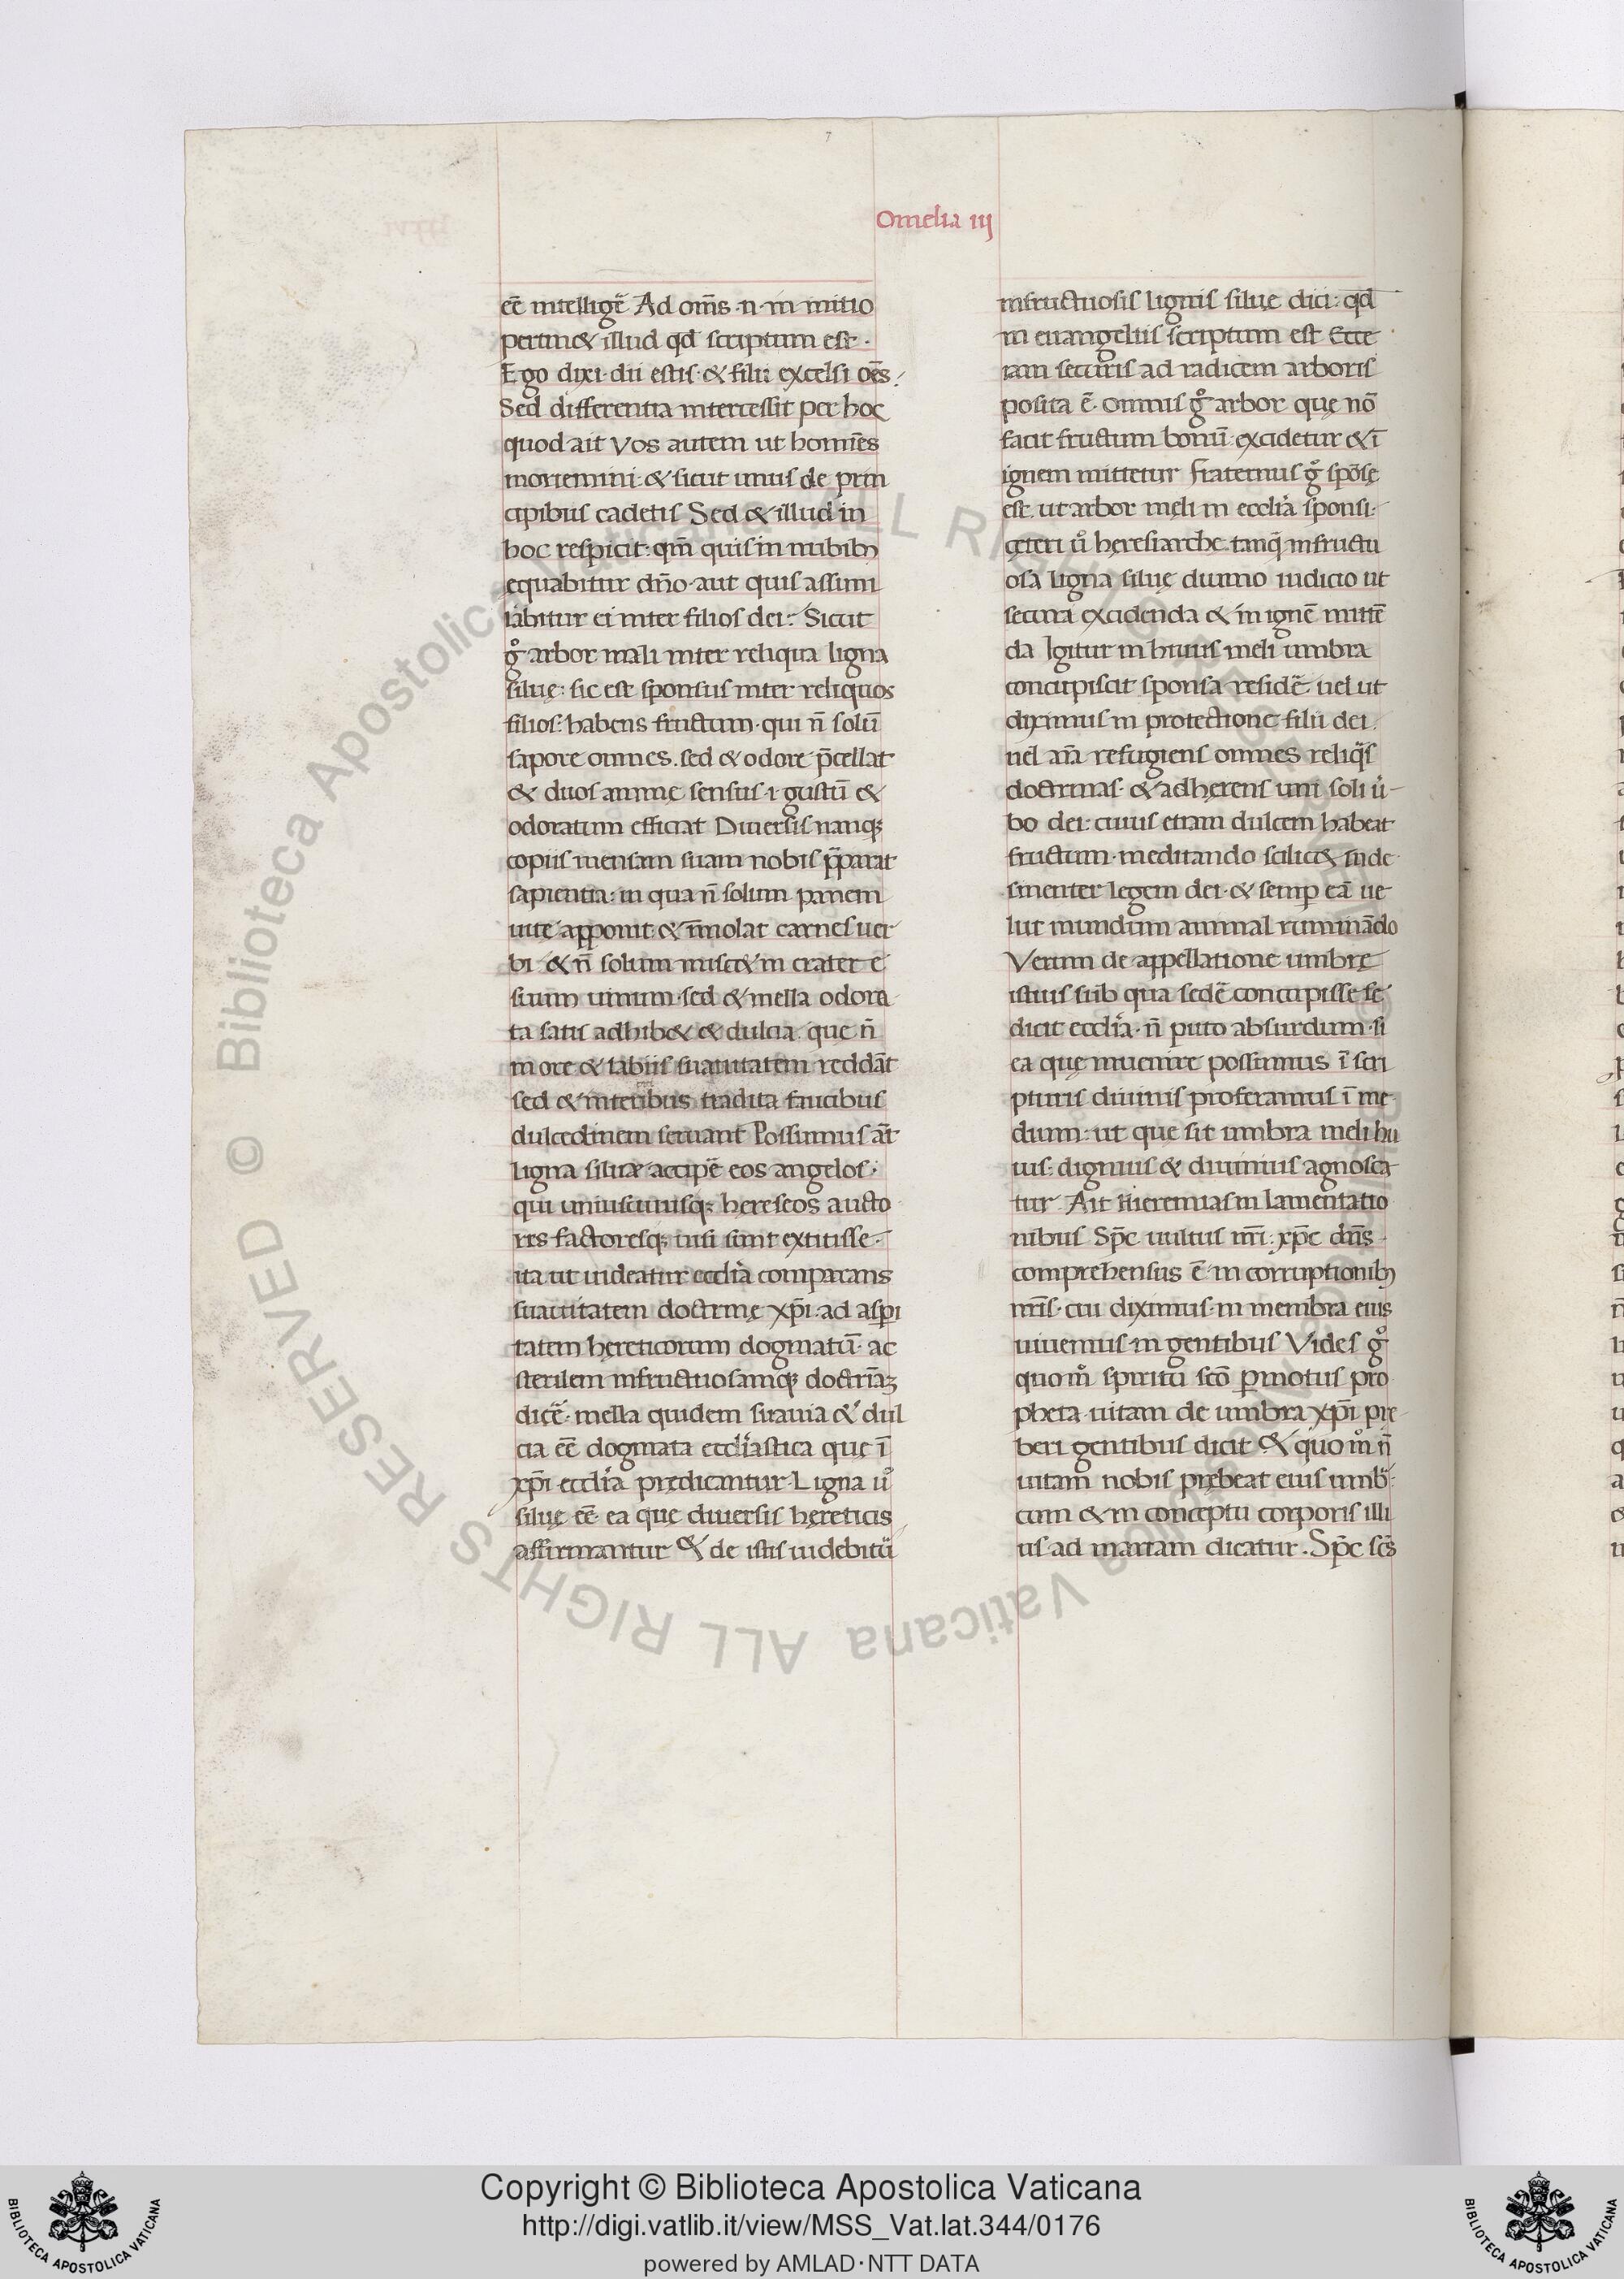 Omelia iij
eē intelligē Ad om̄s ·n· in initio
pertin& illud qd̄ scriptum est ·
Ego dixi· dii estis· & filii excelsi oēs·
Sed differentia intercessit per hoc
quod ait Vos autem ut homiēs
moriemini· & sicut unus de prin
cipibus cadetis Sed & illud in
hoc respicit: qm̄ quis in nubibꝫ
equabitur dn̄o· aut quis assimi
labitur ei inter filios dei: Sicut
gͦ arbor mali inter reliqua ligna
silue: sic est sponsus inter reliquos
filios: habens fructum· qui n̄ solū
sapore omnes. sed & odore p̄cellat
& duos anime sensus ·i· gustū &
odoratum efficiat Diuersis nanqꝫ
copiis mensam suam nobis p̄parat
sapientia: in qua n̄ solum panem
uite apponit & īmolat carnes uer
bi & n̄ solum misc& in crater e
suum uinum· sed & mella odora
ta satis adhib& & dulcia que n̄
more & labiis suauitatem reddāt
sed & interibus tradita faucibus
dulcedinem seruant Possumus āt
ligna siluæ accipē eos angelos·
qui uniuscuiusqꝫ hereseos aucto
res factoresqꝫ uisi sunt extitisse·
ita ut uideatur eccľia comparans
suauitatem doctrine xp̄i· ad aspi
tatem hereticorum dogmatū· ac
sterilem infructuosamqꝫ doctrīaꝫ
dicē· mella quidem suauia & dul
cia eē dogmata eccľiastica que ī
xp̄i eccľia predicantur· Ligna uͦ
silue eē ea que diuersis hęreticis
affirmantur & de istis uidebitū
infructuosis lignis silue dici: qd̄
in euangeliis scriptum est Ecce
iam securis ad radicem arboris
posita ē· omnis gͦ arbor quę nō
facit fructum bonū: excidetur & ī
ignem mittetur Fraternus gͦ spōsę
est ut arbor męli in eccľia sponsi·
cęteri uͦ hęresiarche· tanq̄ infructu
osa ligna siluę diuino iudicio ut
securi excidenda & in ignē mittē
da Igitur in huius meli umbra
concupiscit sponsa residē· uel ut
diximus in protectione filii dei·
uel aīa refugiens omnes reliqͣs
doctrinas· & adhęrens uni soli ū
bo dei: cuius etiam dulcem habeat
fructum· meditando scilic& inde
sinenter legem dei· & semꝑ eā ue
lut mundum animal ruminādo
Verum de appellatione umbre
istius sub qua sedē concupisse se
dicit eccľia· n̄ puto absurdum· si
ea quę inuenire possumus ī scri
pturis diuinis proferamus ī me
dum: ut que sit umbra meli hu
ius: dignius & diuinius agnosca
tur Ait Hieremias in Lamentatio
nibus Sp̄c uultus nr̄i: xp̄c dn̄s·
comprehensus ē in corruptionibꝫ
nr̄is· cui diximus· in membra eius
uiuemus in gentibus Vides gͦ
quomͦ spiritu scō ꝑmotus pro
pheta uitam de umbra xp̄i prę
beri gentibus dicit & quomͦ n̄
uitam nobis prębeat eius umbͣ:
cum & in conceptu corporis illi
us ad mariam dicatur. Sp̄c scs̄
Copyright © Biblioteca Apostolica Vaticana
http://digi.vatlib.it/view/MSS_Vat.lat.344/0176
powered by AMLAD·NTT DATA